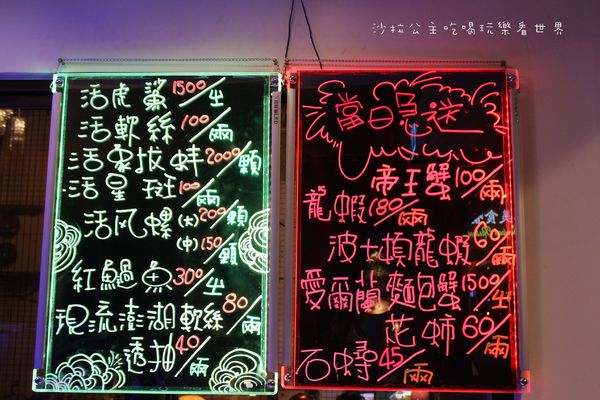 沙拉公主吃喝玩樂看世界
活虎鯊1500/尘
活軟絲100/兩
活象拔蚌2000/顆
活星斑100/兩
活风螺(大)200/顆
(中)150/顆
紅鰡魚300/尘
現流澎湖軟絲80/兩
透抽40/兩
當日急送
帝王蟹100/兩
龍蝦180/兩
波士頓龍蝦60/兩
愛爾蘭麵包蟹1500/尘
花蛳60/兩
石蟳45/兩